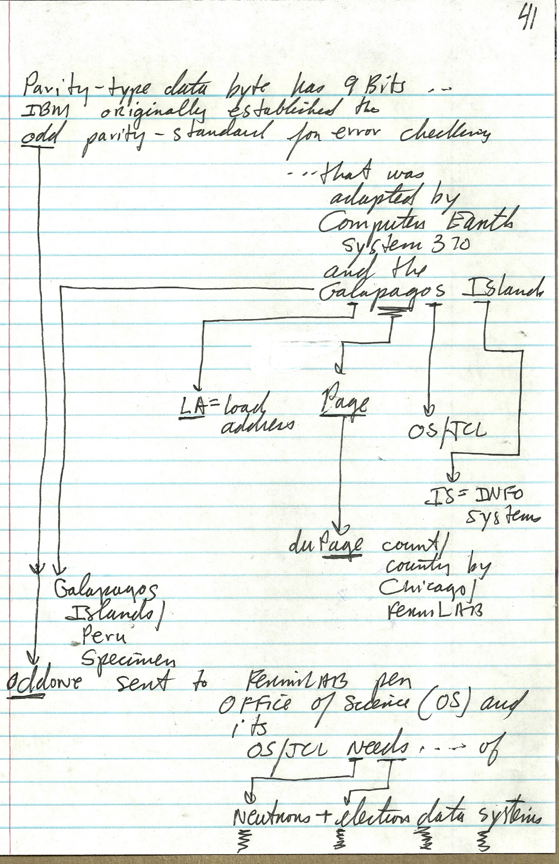 41
Parity-type data byte has 9 Bits ...
IBM originally established the
odd parity-standard for error checking
...that was
adapted by
Computer Earth
System 370
and the
Galapagos Islands
LA=load
address
Page
OS/JCL
IS=INFO
Systems
duPage count/
county by
Chicago/
FermiLAB
Galapagos
Islands/
Peru
Specimen
Oddone sent to FermiLAB per
Office of Science (OS) and
its
OS/JCL Needs .... of
Neutrons + electron data systems